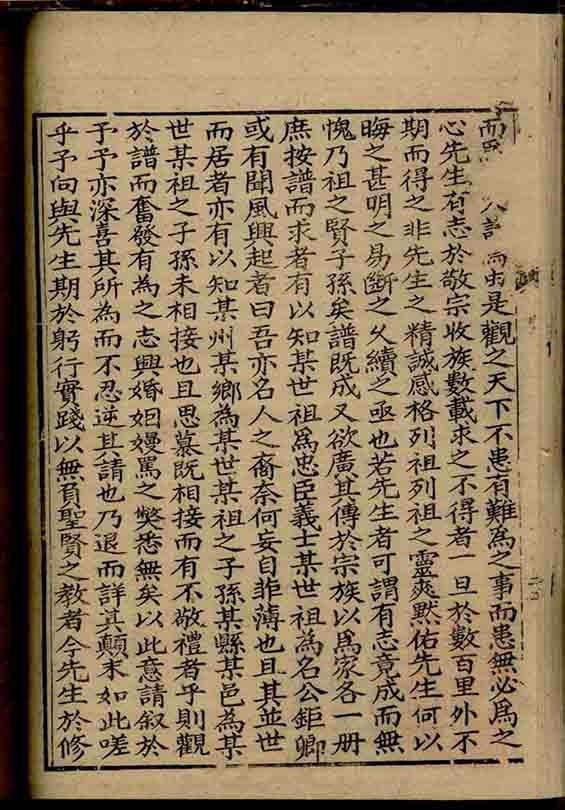 而由是觀之天下不患有難為之事而患無必為之
心先生有志於敬宗收族數載求之不得者一旦於數百里外不
期而得之非先生之精誠感格列祖列祖之靈爽默佑先生何以
晦之甚明之易斷之久續之亟也若先生者可謂有志竟成而無
愧乃祖之賢子孫矣譜既成又欲廣其傳於宗族以爲家各一册
庶按譜而求者有以知某世祖爲忠臣義士某世祖為名公鉅卿
或有聞風興起者曰吾亦名人之裔奈何妄自菲薄也且其並世
而居者亦有以知某州某鄉為某世某祖之子孫某縣某邑為某
世某祖之子孫未相接也且思慕既相接而有不敬禮者乎則觀
於譜而奮發有為之志興婚姻嫚罵之獘悉無矣以此意請叙於
予予亦深喜其所為而不忍逆其請也乃退而詳其顛末如此嗟
乎予向與先生期於躬行實踐以無負聖賢之教者今先生於修